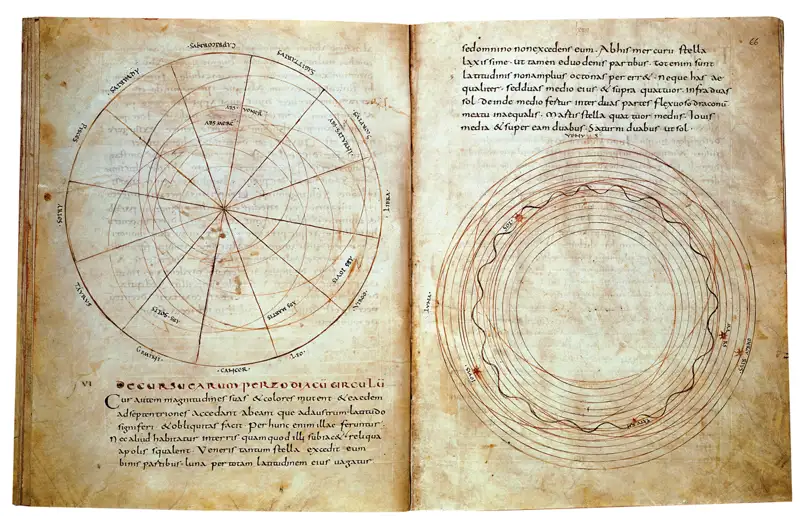 CAPRICORNUS
SAGITTARIUS
AQUARIUS
SCORPIUS
PISCES
ABS · VENERIS
ABS MERC
ABS SATURNI
LIBRA
ARIES
ABS IOVIS
VIRGO
TAURUS
ABS MARTIS
ABS · SOLIS
LEO
GEMINI
· CANCER ·
VI DE CURSU EARUM PER ZODIACŪ CIRCULŪ
Cur autem magnitudines suas & colores mutent & eaedem
ad septentriones accedant abeant que ad austrum · latitudo
signiferi & obliquitas facit · Per hunc enim illae feruntur
Nec aliud habitatur in terris quam quod illi subiac& · reliqua
a polis squalent · Veneris tantum stella excedit eum
binis partibus · luna per totam latitudinem eius vagatur
66
sed omnino non excedens eum · Ab his mercurii stella
laxissime · ut tamen e duodenis partibus · tot enim sunt
latitudinis non amplius octonas perer& · neque has ae
qualiter · sed duas medio eius & supra quattuor · infra duas
sol · Deinde medio fertur inter duas partes flexuoso draconū
meatu inaequalis · Martis stella quattuor mediis · Iovis
media & super eam duabus · Saturni duabus ut sol ·
VENUS
LUNA
SOL
MARS